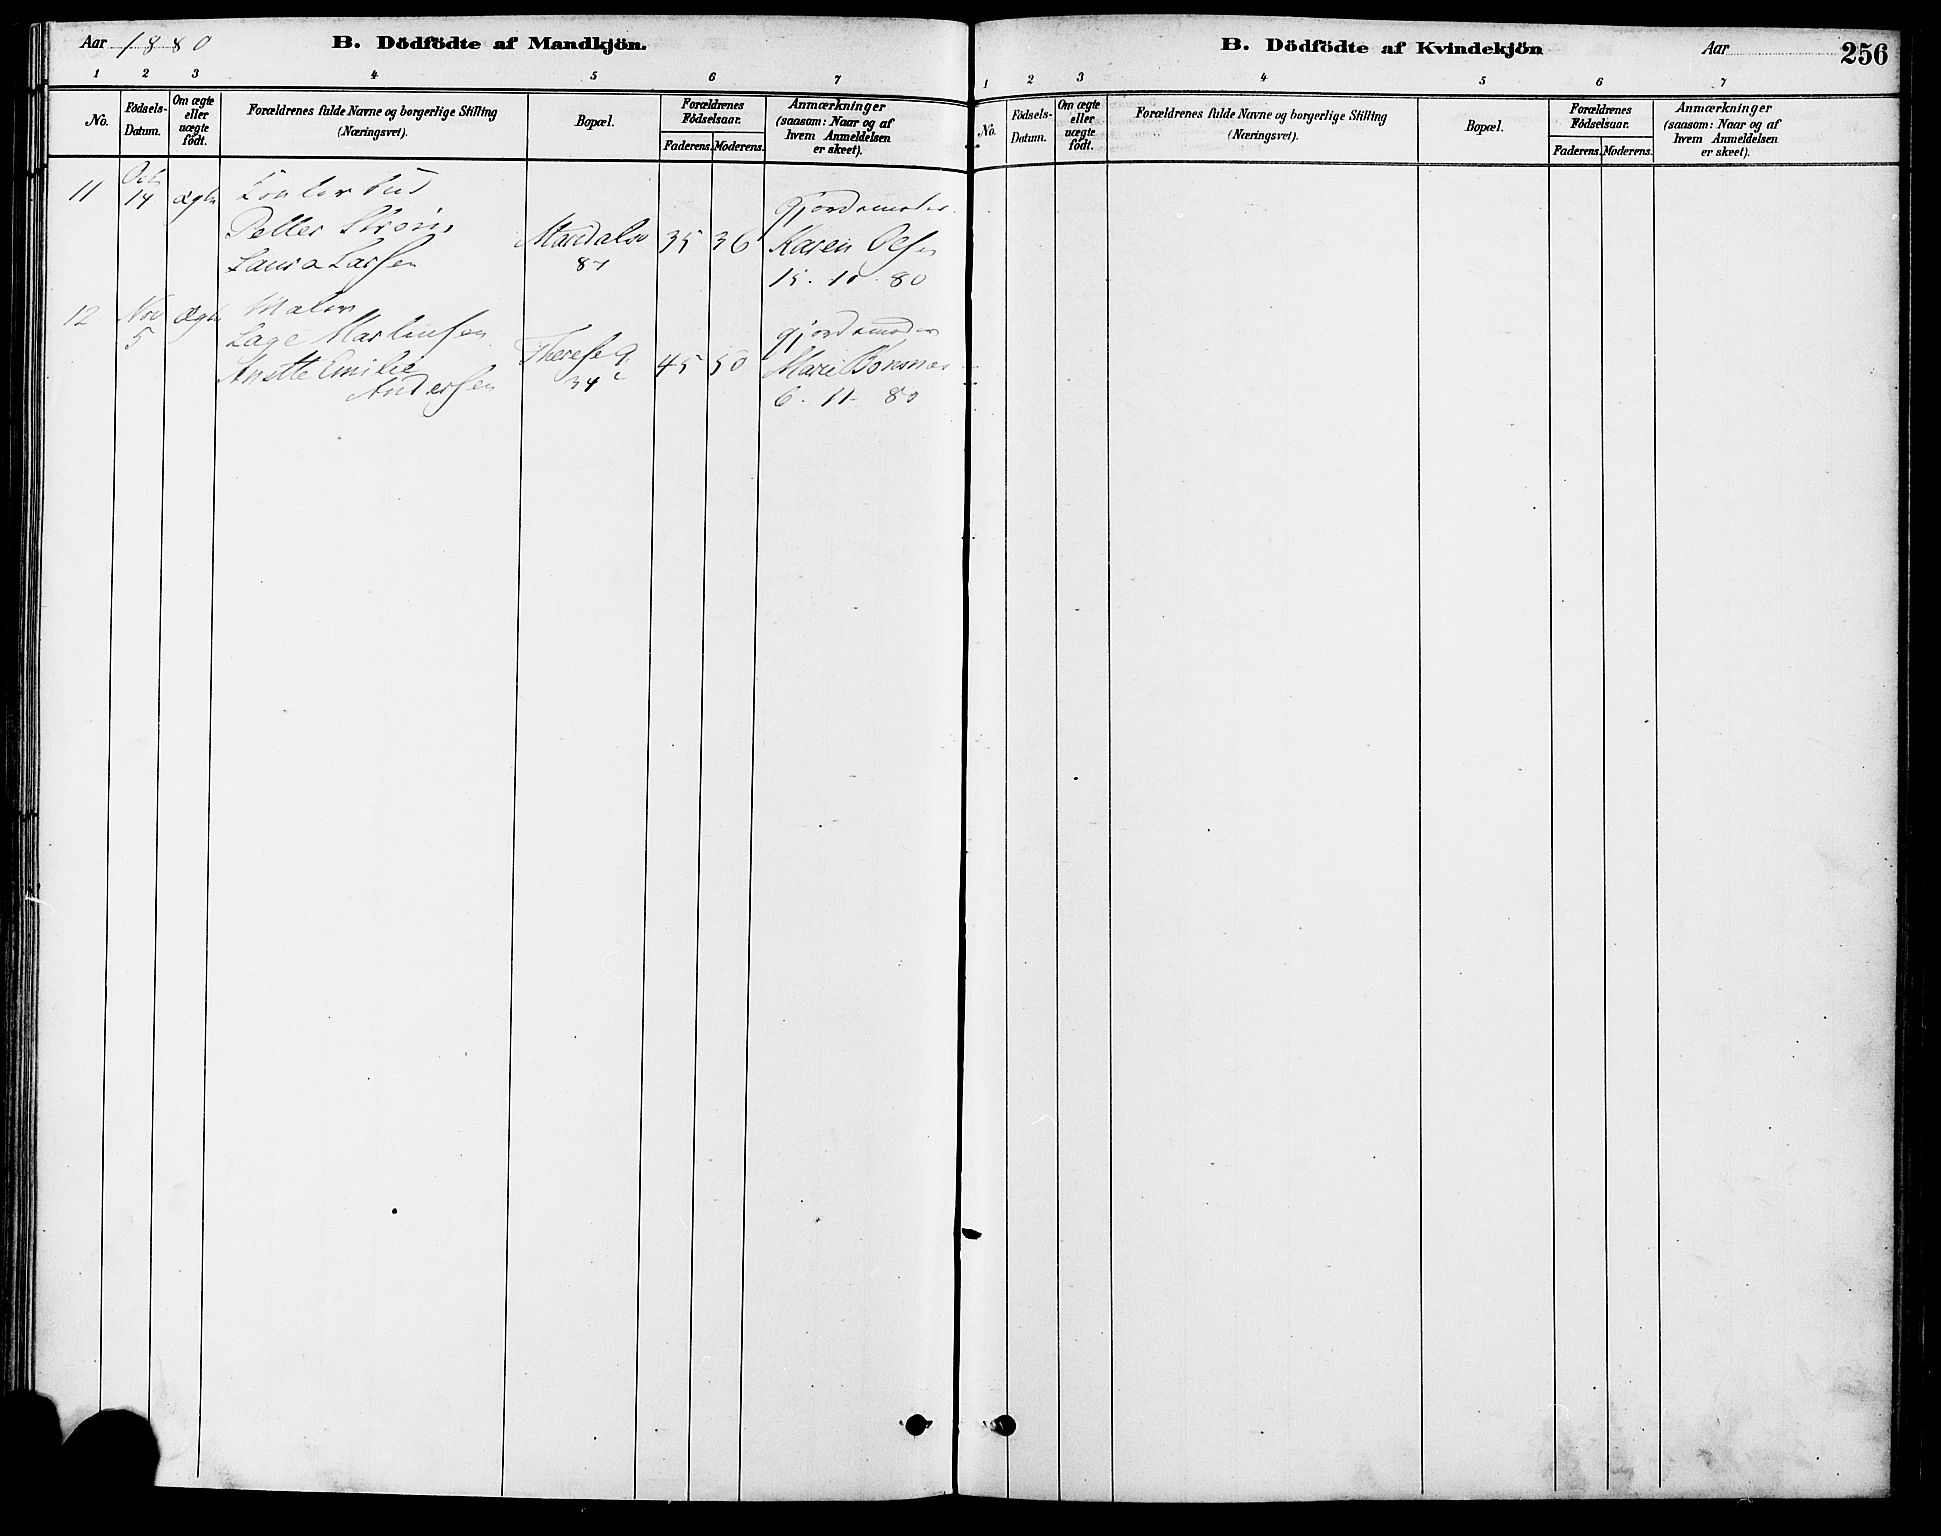 Aar 1880
B. Dödfödte af Mandkjön.
1 2 3 4 5 6 7
No.
Födsels-Datum.
Om ægte eller uægte födt.
Forældrenes fulde Navne og borgerlige Stilling (Næringsvei).
Bopæl.
Forældrenes Födselsaar.
Faderens. Moderens.
Anmærkninger (saasom: Naar og af hvem Anmeldelsen er skeet).
11 Oct 14 ægte
Petter Ström
Laura Larsen
87
35 36
gjordemoder
Karen Olsen
15. 10. 80
12 Nov 5 ægte
Maler
Lage Martinsen
Anette Emilie
Andersen
Therese g.
34
45 50
gjordemoder
Marie
6. 11. 80
B. Dödfödte af Kvindekjön
Aar
256
1 2 3 4 5 6 7
No.
Födsels-Datum.
Om ægte eller uægte födt.
Forældrenes fulde Navne og borgerlige Stilling (Næringsvei).
Bopæl.
Forældrenes Födselsaar.
Faderens. Moderens.
Anmærkninger (saasom: Naar og af hvem Anmeldelsen er skeet).